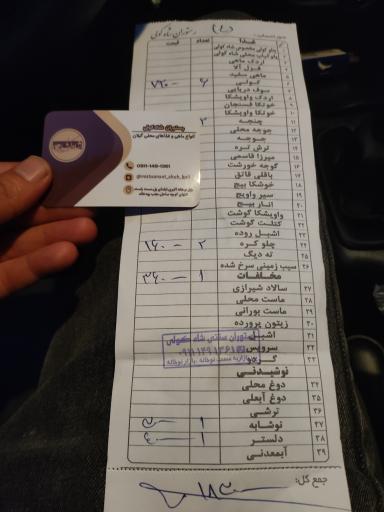 رستوران شاه کولی
غذا تعداد قیمت
پلو کولی مخصوص شاه کولی
پلو کباب محلی شاه کولی
اردک ماهی
قزل آلا
ماهی سفید
کولی ۶ ۷۲۰
سوف دریایی
اردک واویشکا
خوتکا فسنجان
خوتکا واویشکا
۱۱ چنجه ۳
۱۲ جوجه محلی
۱۳ جوجه
۱۴ ترش تره
۱۵ میرزا قاسمی
۱۶ گوجه خورشت
۱۷ باقلی قاتق
۱۸ خوشکا بیج
۱۹ سیر واویج
۲۰ انار بیج
۲۱ واویشکا گوشت
۲۲ کتلت گوشت
۲۳ اشپل روده
۲۴ چلو کره ۲ ۱۶۰
۲۵ ته دیگ
۲۶ سیب زمینی سرخ شده
مخلفات ۱ ۳۶۰
۲۷ سالاد شیرازی
۲۸ ماست محلی
۲۹ ماست بورانی
۳۰ زیتون پرورده
۳۱ اشپل
۳۲ سرویس
۳۳ گردو
نوشیدنی
۳۴ دوغ محلی
۳۵ دوغ آبعلی
۳۶ ترشی
۳۷ نوشابه ۱
۳۸ دلستر ۱
۳۹ آبمعدنی
جمع کل:
رستوران شاه کولی
انواع ماهی و غذاهای محلی گیلان
0911-149-1361
رستوران سنتی شاه کولی
۰۹۱۱۱۴۹۱۳۶۱